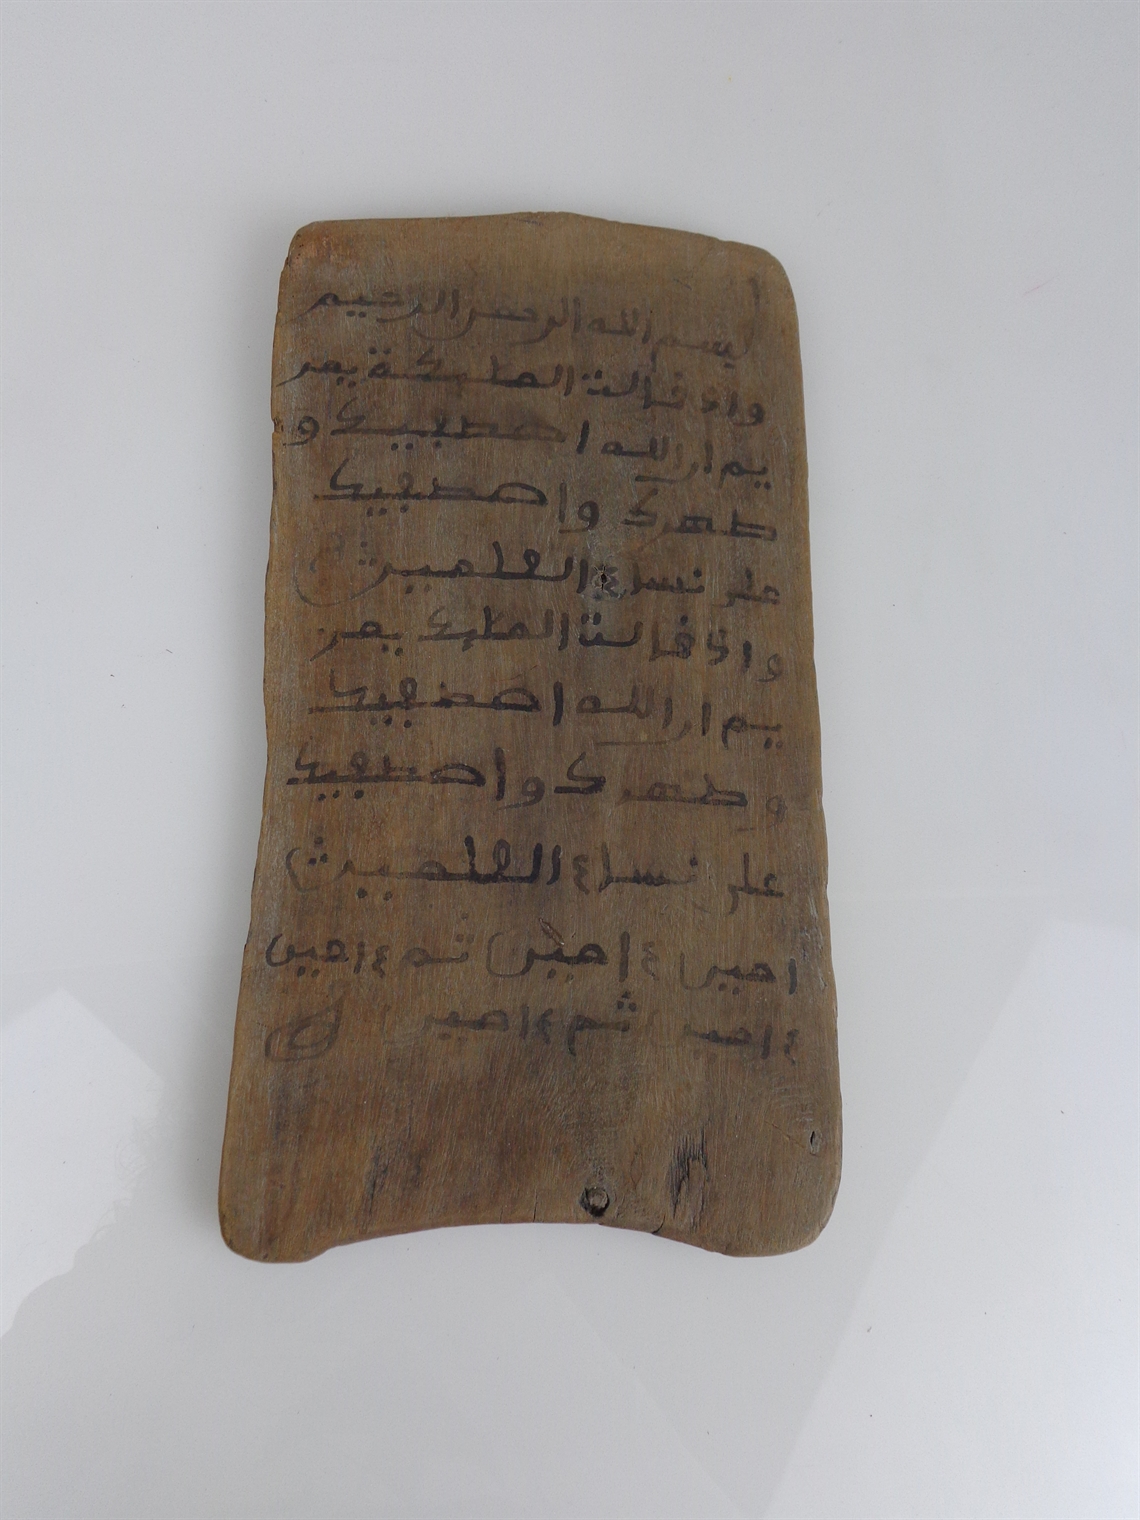 بسم الله الرحمن الرحيم
واذ قالت الملئكة يمر
يم ان الله اصطفيك و
طهرك واصطفيك
على نساء العلمين
واذ قالت الملئكة يمر
يم ان الله اصطفيك
وطهرك واصطفيك
على نساء العلمين
امين ءامين ثم ءامين
ءامين ثم ءامين